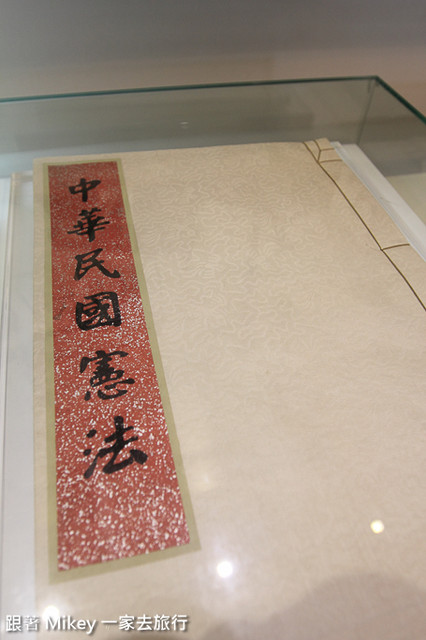 中華民國憲法
跟著 Mikey 一家去旅行